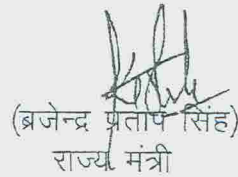 (ब्रजेन्द्र प्रताप सिंह)
राज्य मंत्री